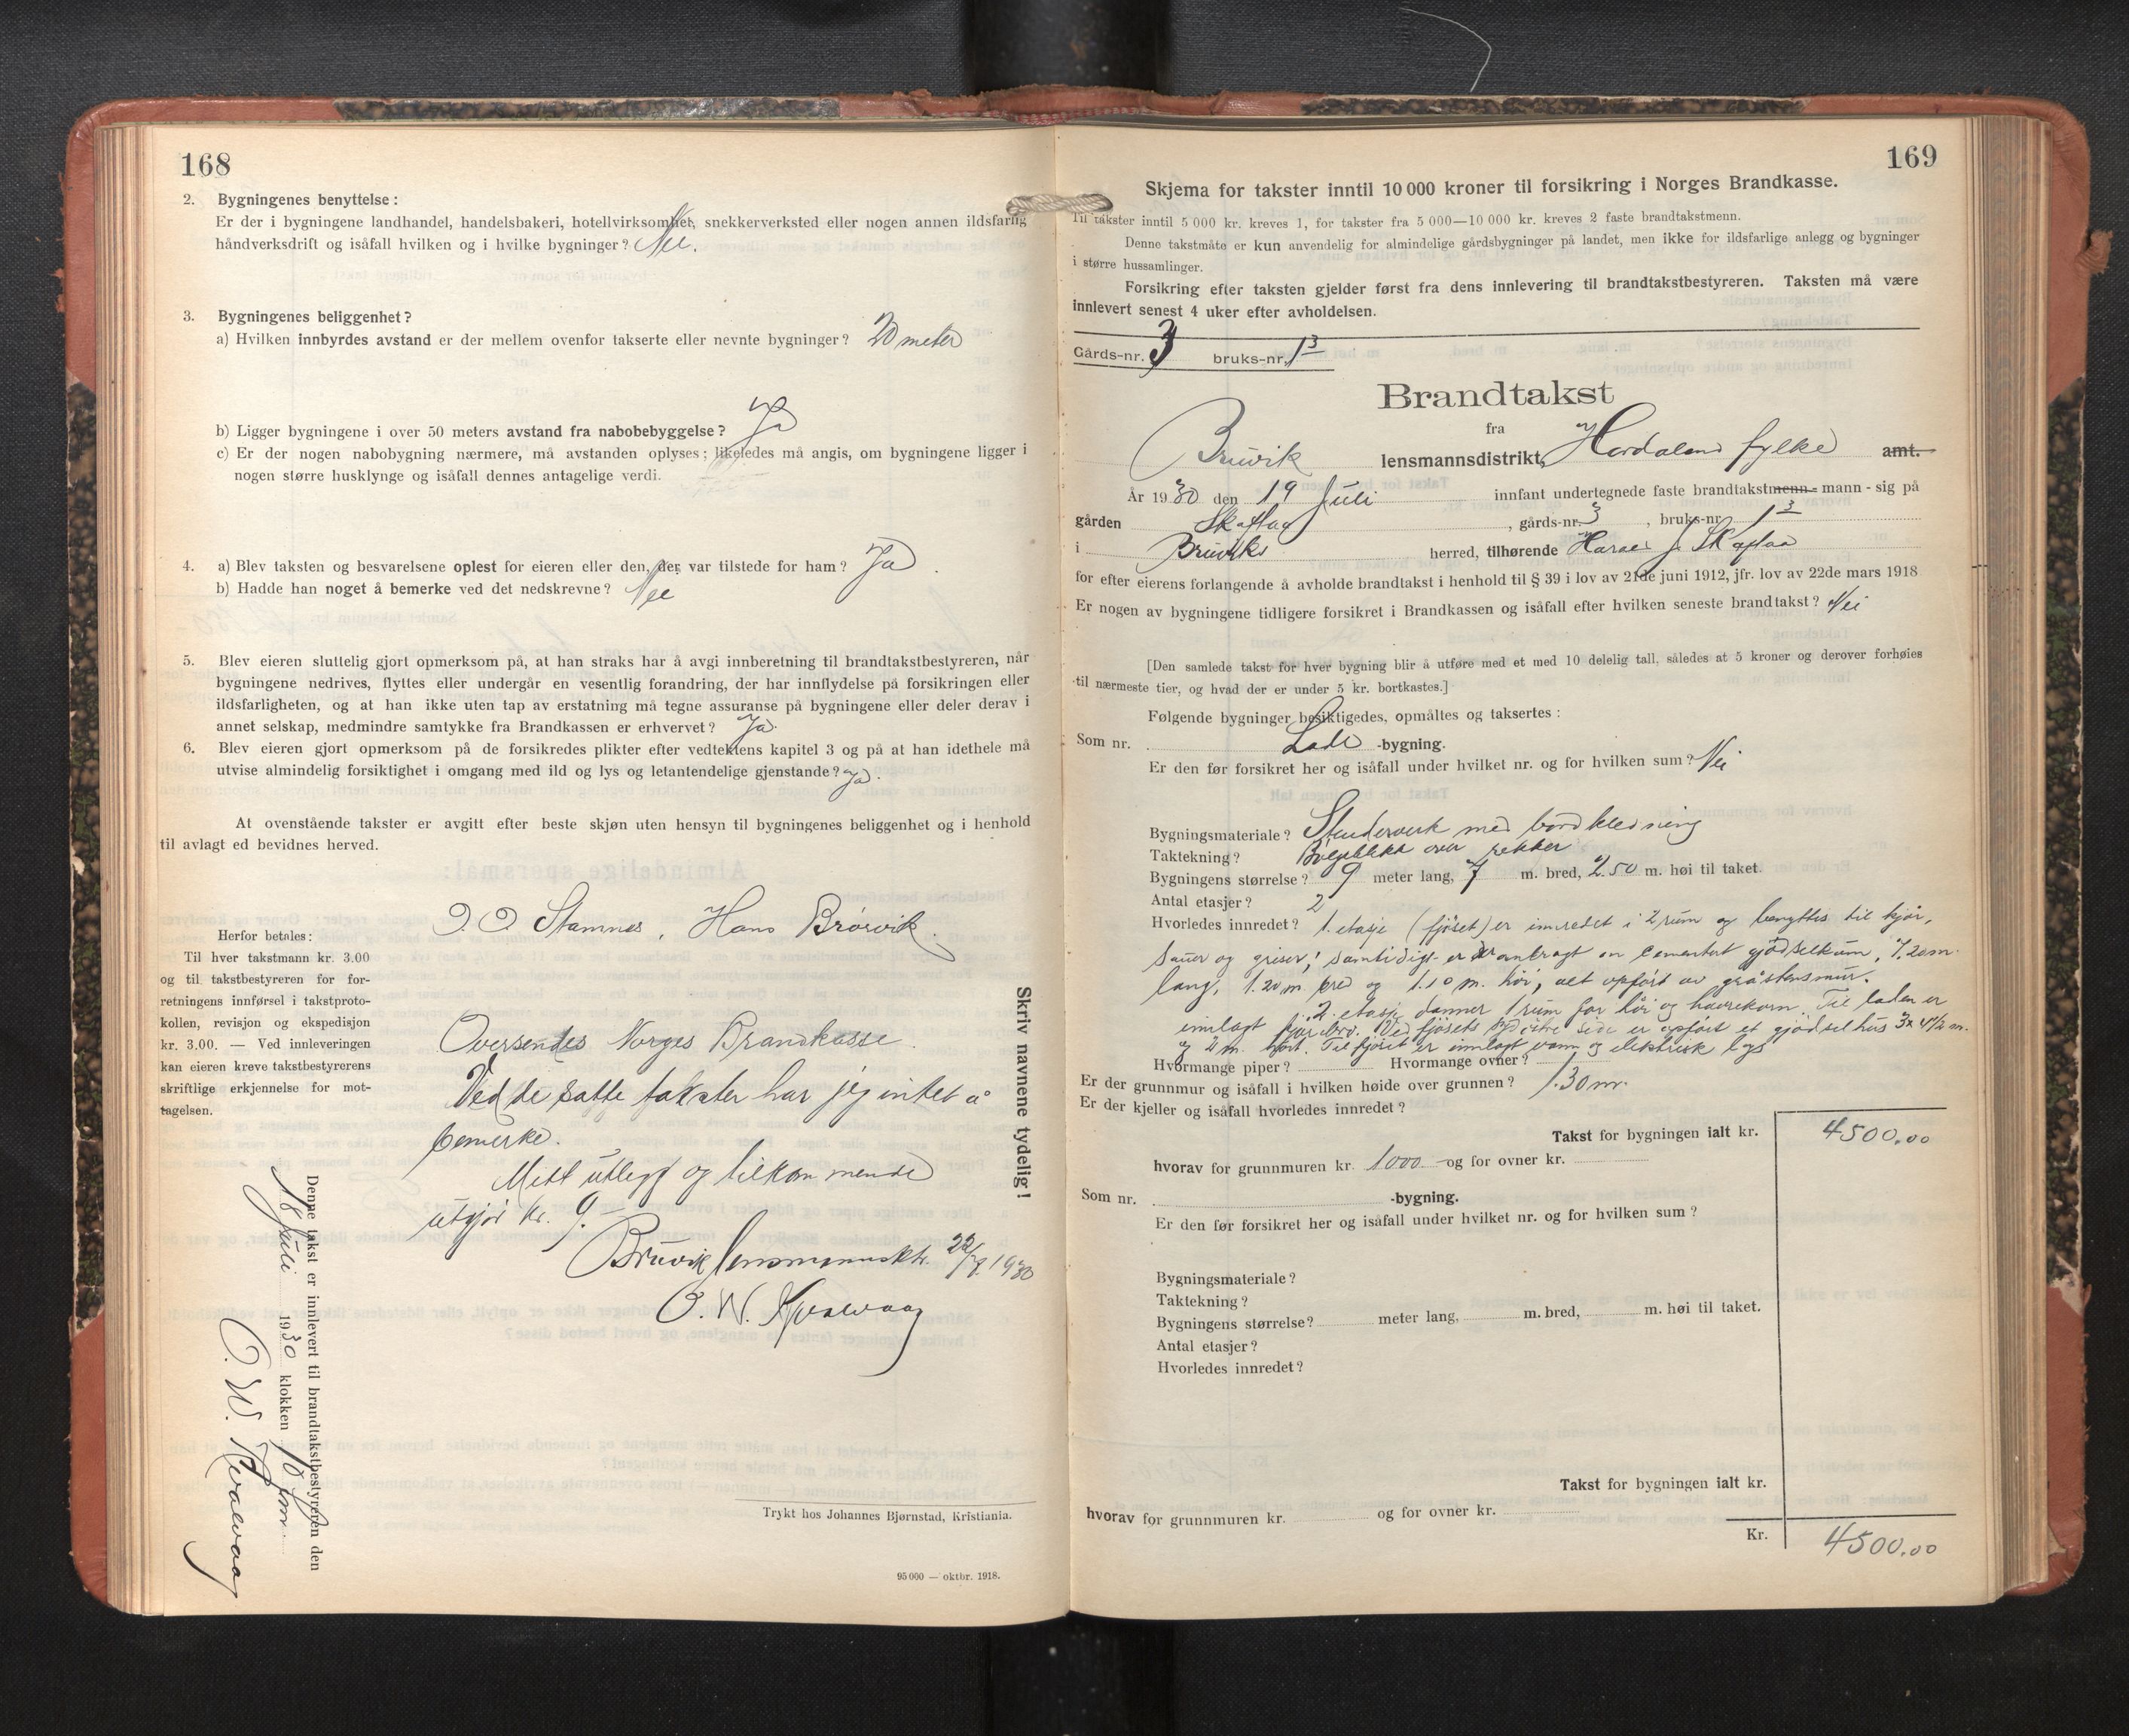 168
2. Bygningenes benyttelse :
Er der i bygningene landhandel, handelsbakeri, hotellvirksomhet, snekkerverksted eller nogen annen ildsfarlig
håndverksdrift og isåfall hvilken og i hvilke bygninger? Nei.
3. Bygningenes beliggenhet?
a) Hvilken innbyrdes avstand er der mellem ovenfor takserte eller nevnte bygninger? 20 meter
b) Ligger bygningene i over 50 meters avstand fra nabobebyggelse? Ja
c) Er der nogen nabobygning nærmere, må avstanden oplyses; likeledes må angis, om bygningene ligger i
nogen større husklynge og isåfall dennes antagelige verdi.
4. a) Blev taksten og besvarelsene oplest for eieren eller den, der var tilstede for ham? Ja.
b) Hadde han noget å bemerke ved det nedskrevne? Nei
5. Blev eieren sluttelig gjort opmerksom på, at han straks har å avgi innberetning til brandtakstbestyreren, når
bygningene nedrives, flyttes eller undergår en vesentlig forandring, der har innflydelse på forsikringen eller
ildsfarligheten, og at han ikke uten tap av erstatning må tegne assuranse på bygningene eller deler derav i
annet selskap, medmindre samtykke fra Brandkassen er erhvervet? Ja.
6. Blev eieren gjort opmerksom på de forsikredes plikter efter vedtektens kapitel 3 og på at han idethele må
utvise almindelig forsiktighet i omgang med ild og lys og letantendelige gjenstande? Ja.
At ovenstående takster er avgitt efter beste skjøn uten hensyn til bygningenes beliggenhet og i henhold
til avlagt ed bevidnes herved.
O O Stamnes, Hans Brørvik.
Herfor betales:
Til hver takstmann kr. 3.00
og til takstbestyreren for for-
retningens innførsel i takstproto-
kollen, revisjon og ekspedisjon
kr. 3,00. — Ved innleveringen
kan eieren kreve takstbestyrerens
skriftlige erkjennelse for mot-
tagelsen.
Oversendes Norges Brandkasse.
Ved de satte takster har jeg intet å
bemerke.
Mitt utlegg og tilkommende
utgjør kr. 9.-
Bruvik lensmannsktr. 22/7. 1930
O. W. Kvalvaag
Skriv navnene tydelig!
Denne takst er innlevert til brandtakstbestyreren den
18 Juli 1930 klokken 10 fm.
O. W. Kvalvaag
Trykt hos Johannes Bjørnstad, Kristiania.
95 000 — oktbr. 1918.
169
Skjema for takster inntil 10 000 kroner til forsikring i Norges Brandkasse.
Til takster inntil 5 000 kr. kreves 1, for takster fra 5 000—10 000 kr. kreves 2 faste brandtakstmenn.
Denne takstmåte er kun anvendelig for almindelige gårdsbygninger på landet, men ikke for ildsfarlige anlegg og bygninger
i større hussamlinger.
Forsikring efter taksten gjelder først fra dens innlevering til brandtakstbestyreren. Taksten må være
innlevert senest 4 uker efter avholdelsen.
Gårds-nr. 3 bruks-nr. 1 3
Brandtakst
fra
Bruvik lensmannsdistrikt, Hordaland fylke amt.
År 1930 den 19 Juli innfant undertegnede faste brandtakstmenn - mann - sig på
gården Skaftaa, gårds-nr. 3, bruks-nr. 1 3
i Bruviks herred, tilhørende J. Skaftaa
for efter eierens forlangende å avholde brandtakst i henhold til § 39 i lov av 21de juni 1912, jfr. lov av 22de mars 1918
Er nogen av bygningene tidligere forsikret i Brandkassen og isåfall efter hvilken seneste brandtakst? Nei
[Den samlede takst for hver bygning blir å utføre med et med 10 delelig tall, således at 5 kroner og derover forhøies
til nærmeste tier, og hvad der er under 5 kr. bortkastes.]
Følgende bygninger besiktigedes, opmåltes og taksertes :
Som nr. Lade -bygning.
Er den før forsikret her og isåfall under hvilket nr. og for hvilken sum? Nei
Bygningsmateriale? Stenderverk med bordkledning
Taktekning? Bølgeblikk over rekker
Bygningens størrelse? 9 meter lang, 7 m. bred, 2.50 m. høi til taket.
Antal etasjer? 2
Hvorledes innredet? 1. etasje (fjøset) er innredet i 2 rum og benyttes til kjør,
sauer og griser; samtidigt er anbragt en cementert gjødselkum, 7.20 m.
lang, 1.20 m. bred og 1.10 m. høi, alt opført av gråstensmur.
2. etasje danner 1 rum for høi og havrekorn. Til laden er
innlagt kjørebro. Ved fjøsets side er opført et gjødselhus 3x4½ m.
og 2 m. høit. Til fjøset er innlagt vann og elektrisk lys
Hvormange piper? Hvormange ovner?
Er der grunnmur og isåfall i hvilken høide over grunnen? 1.30 m.
Er der kjeller og isåfall hvorledes innredet?
Takst for bygningen ialt kr. 4500.00
hvorav for grunnmuren kr. 1000 - og for ovner kr.
Som nr. -bygning.
Er den før forsikret her og isåfall under hvilket nr. og for hvilken sum?
Bygningsmateriale?
Taktekning?
Bygningens størrelse? meter lang, m. bred, m. høi til taket.
Antal etasjer?
Hvorledes innredet?
Takst for bygningen ialt kr.
hvorav for grunnmuren kr. og for ovner kr.
Kr. 4500.00